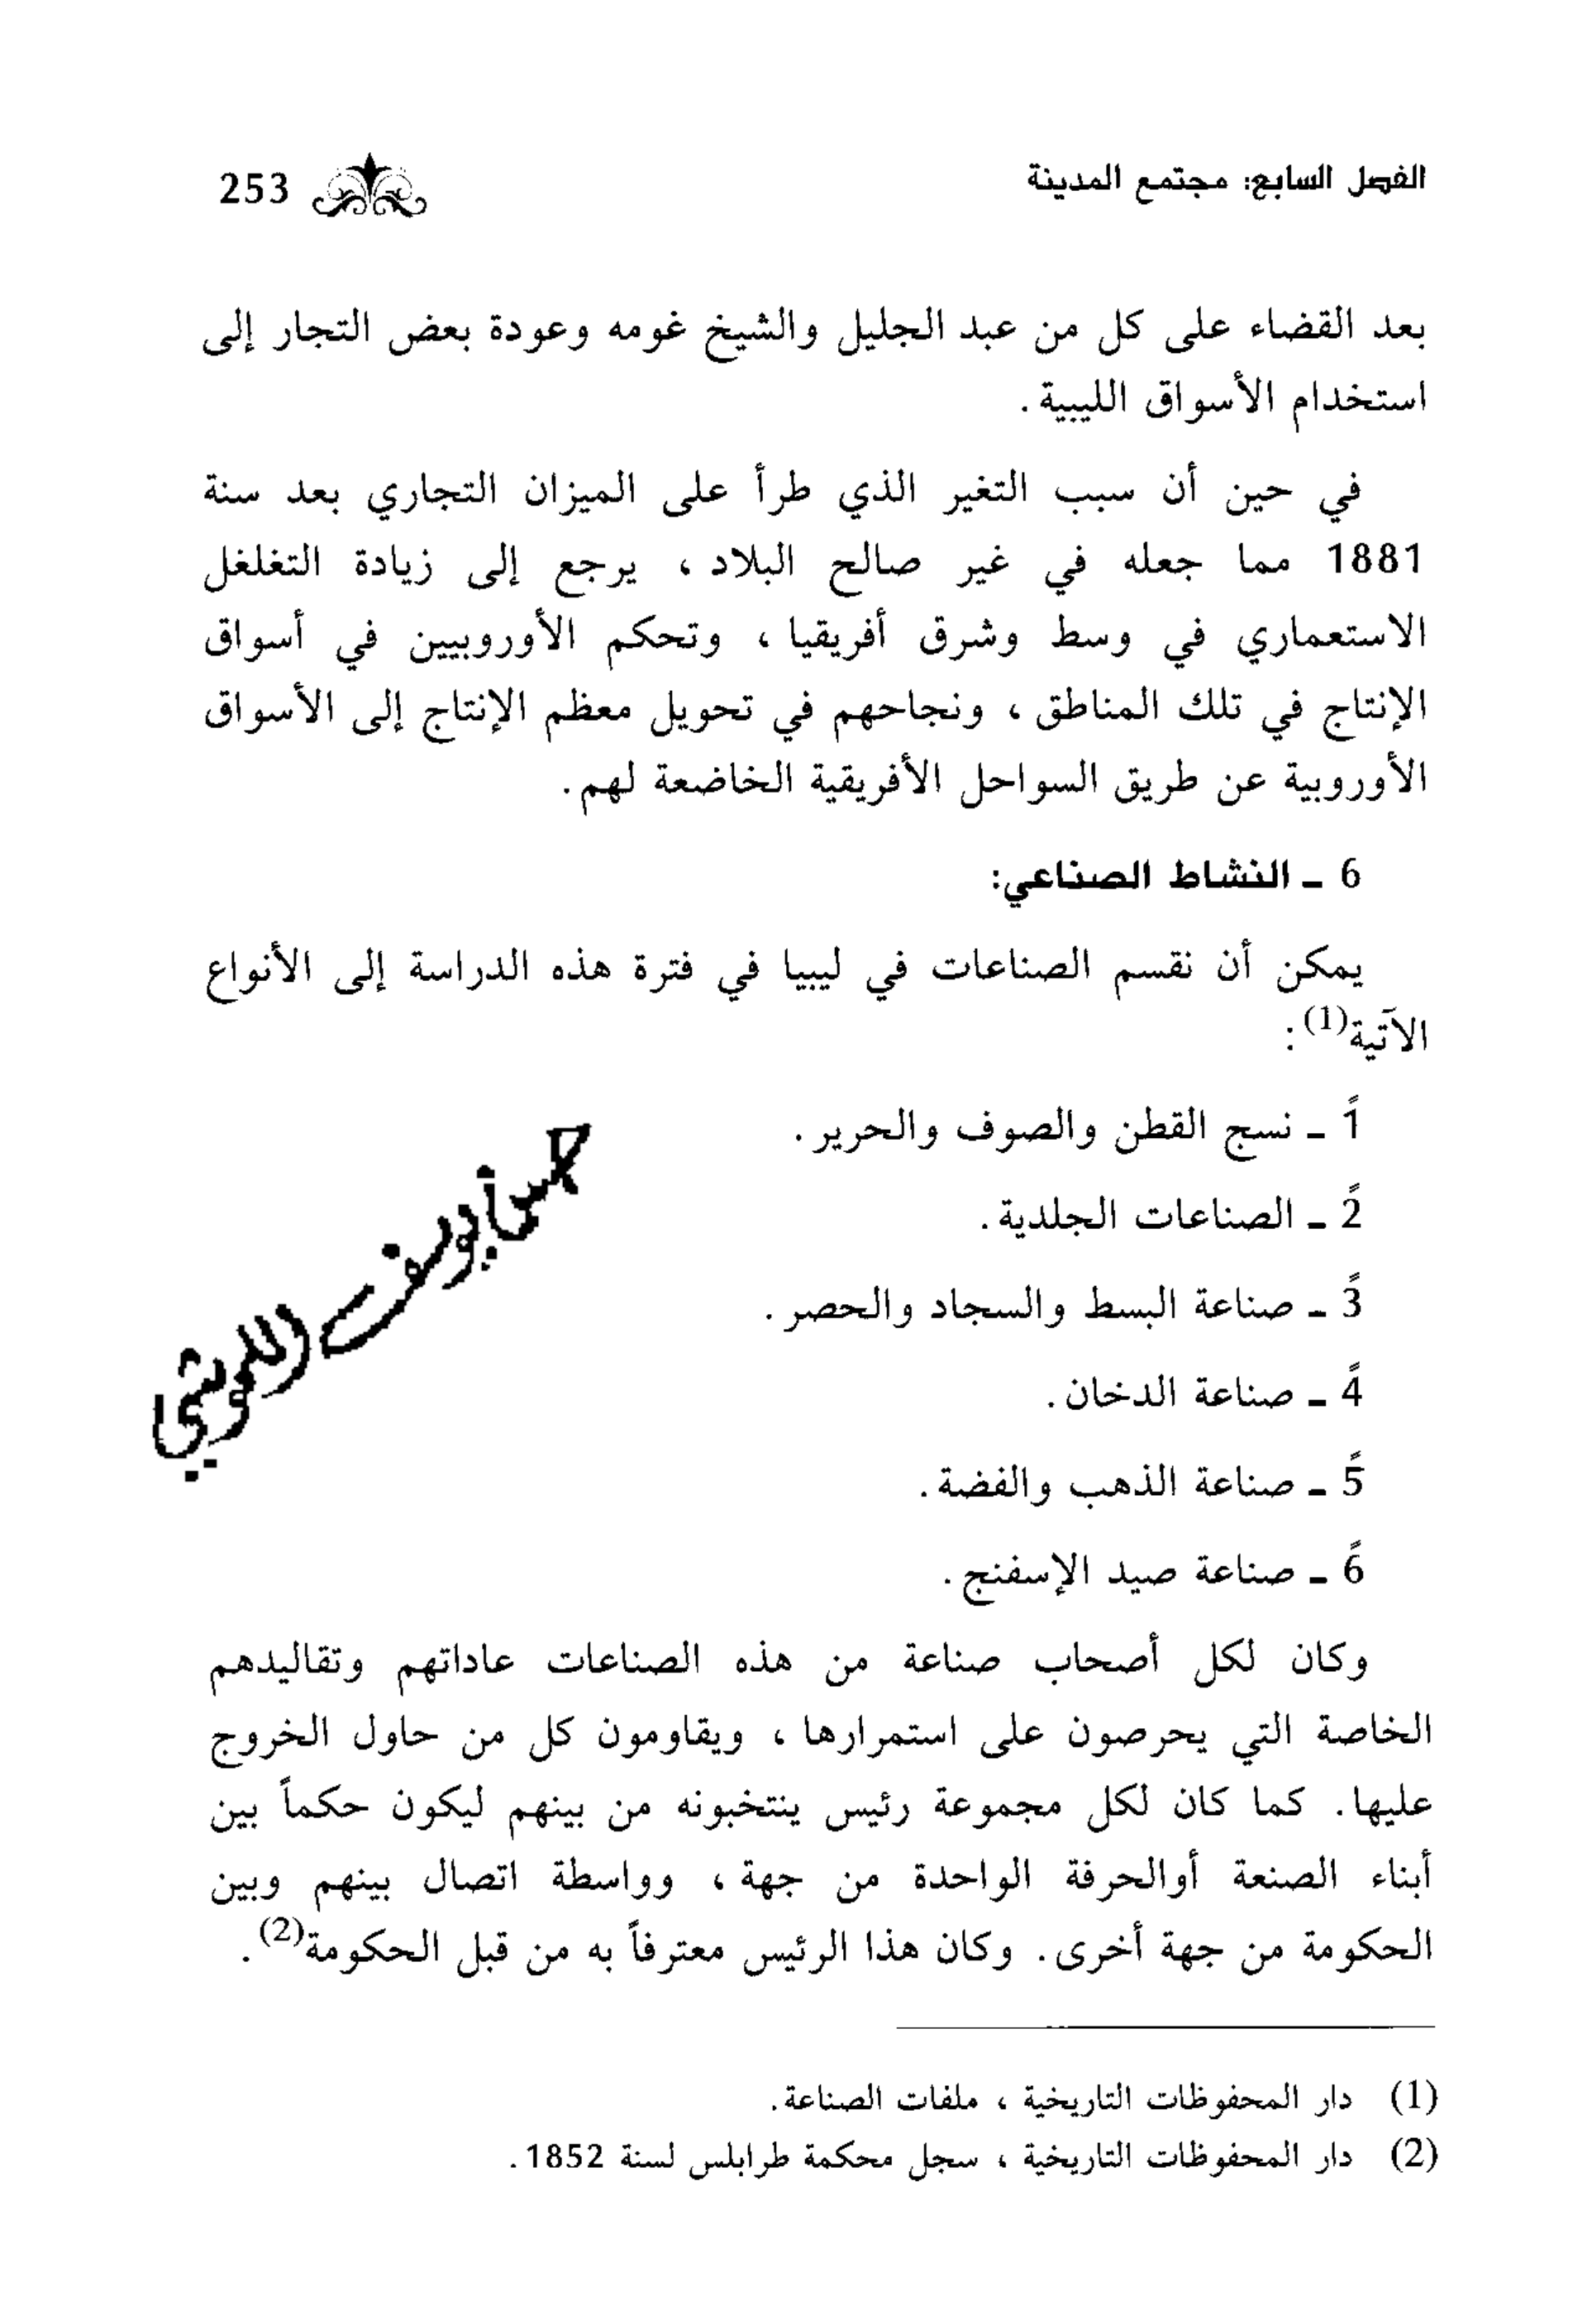 الفصل السابع: مجتمع المدينة 253
بعد القضاء على كل من عبد الجليل والشيخ غومه وعودة بعض التجار إلى
استخدام الأسواق الليبية.
في حين أن سبب التغير الذي طرأ على الميزان التجاري بعد سنة
1881 مما جعله في غير صالح البلاد، يرجع إلى زيادة التغلغل
الاستعماري في وسط وشرق أفريقيا، وتحكم الأوروبيين في أسواق
الإنتاج في تلك المناطق، ونجاحهم في تحويل معظم الإنتاج إلى الأسواق
الأوروبية عن طريق السواحل الأفريقية الخاضعة لهم.
6 ـ النشاط الصناعي:
يمكن أن نقسم الصناعات في ليبيا في فترة هذه الدراسة إلى الأنواع
الآتية(1):
1ً ـ نسج القطن والصوف والحرير.
2ً ـ الصناعات الجلدية.
3ً ـ صناعة البسط والسجاد والحصر.
4ً ـ صناعة الدخان.
5ً ـ صناعة الذهب والفضة.
6ً ـ صناعة صيد الإسفنج.
وكان لكل أصحاب صناعة من هذه الصناعات عاداتهم وتقاليدهم
الخاصة التي يحرصون على استمرارها، ويقاومون كل من حاول الخروج
عليها. كما كان لكل مجموعة رئيس ينتخبونه من بينهم ليكون حكماً بين
أبناء الصنعة أوالحرفة الواحدة من جهة، وواسطة اتصال بينهم وبين
الحكومة من جهة أخرى. وكان هذا الرئيس معترفاً به من قبل الحكومة(2).
(1) دار المحفوظات التاريخية، ملفات الصناعة.
(2) دار المحفوظات التاريخية، سجل محكمة طرابلس لسنة 1852.